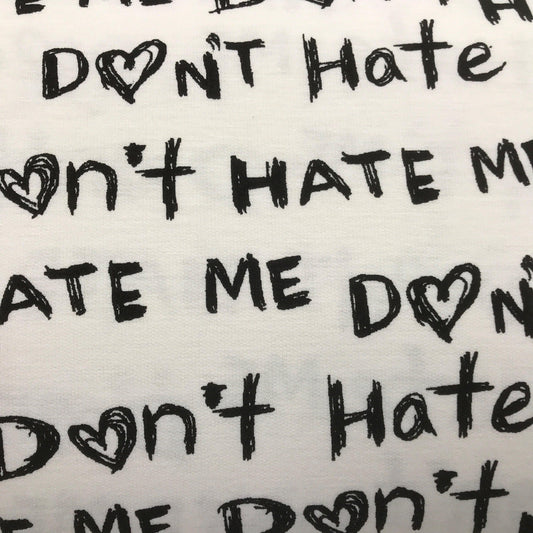 E ME DON'T H
DON'T Hate
on't HATE ME
ATE ME DON'
Don't Hate
E ME Don't